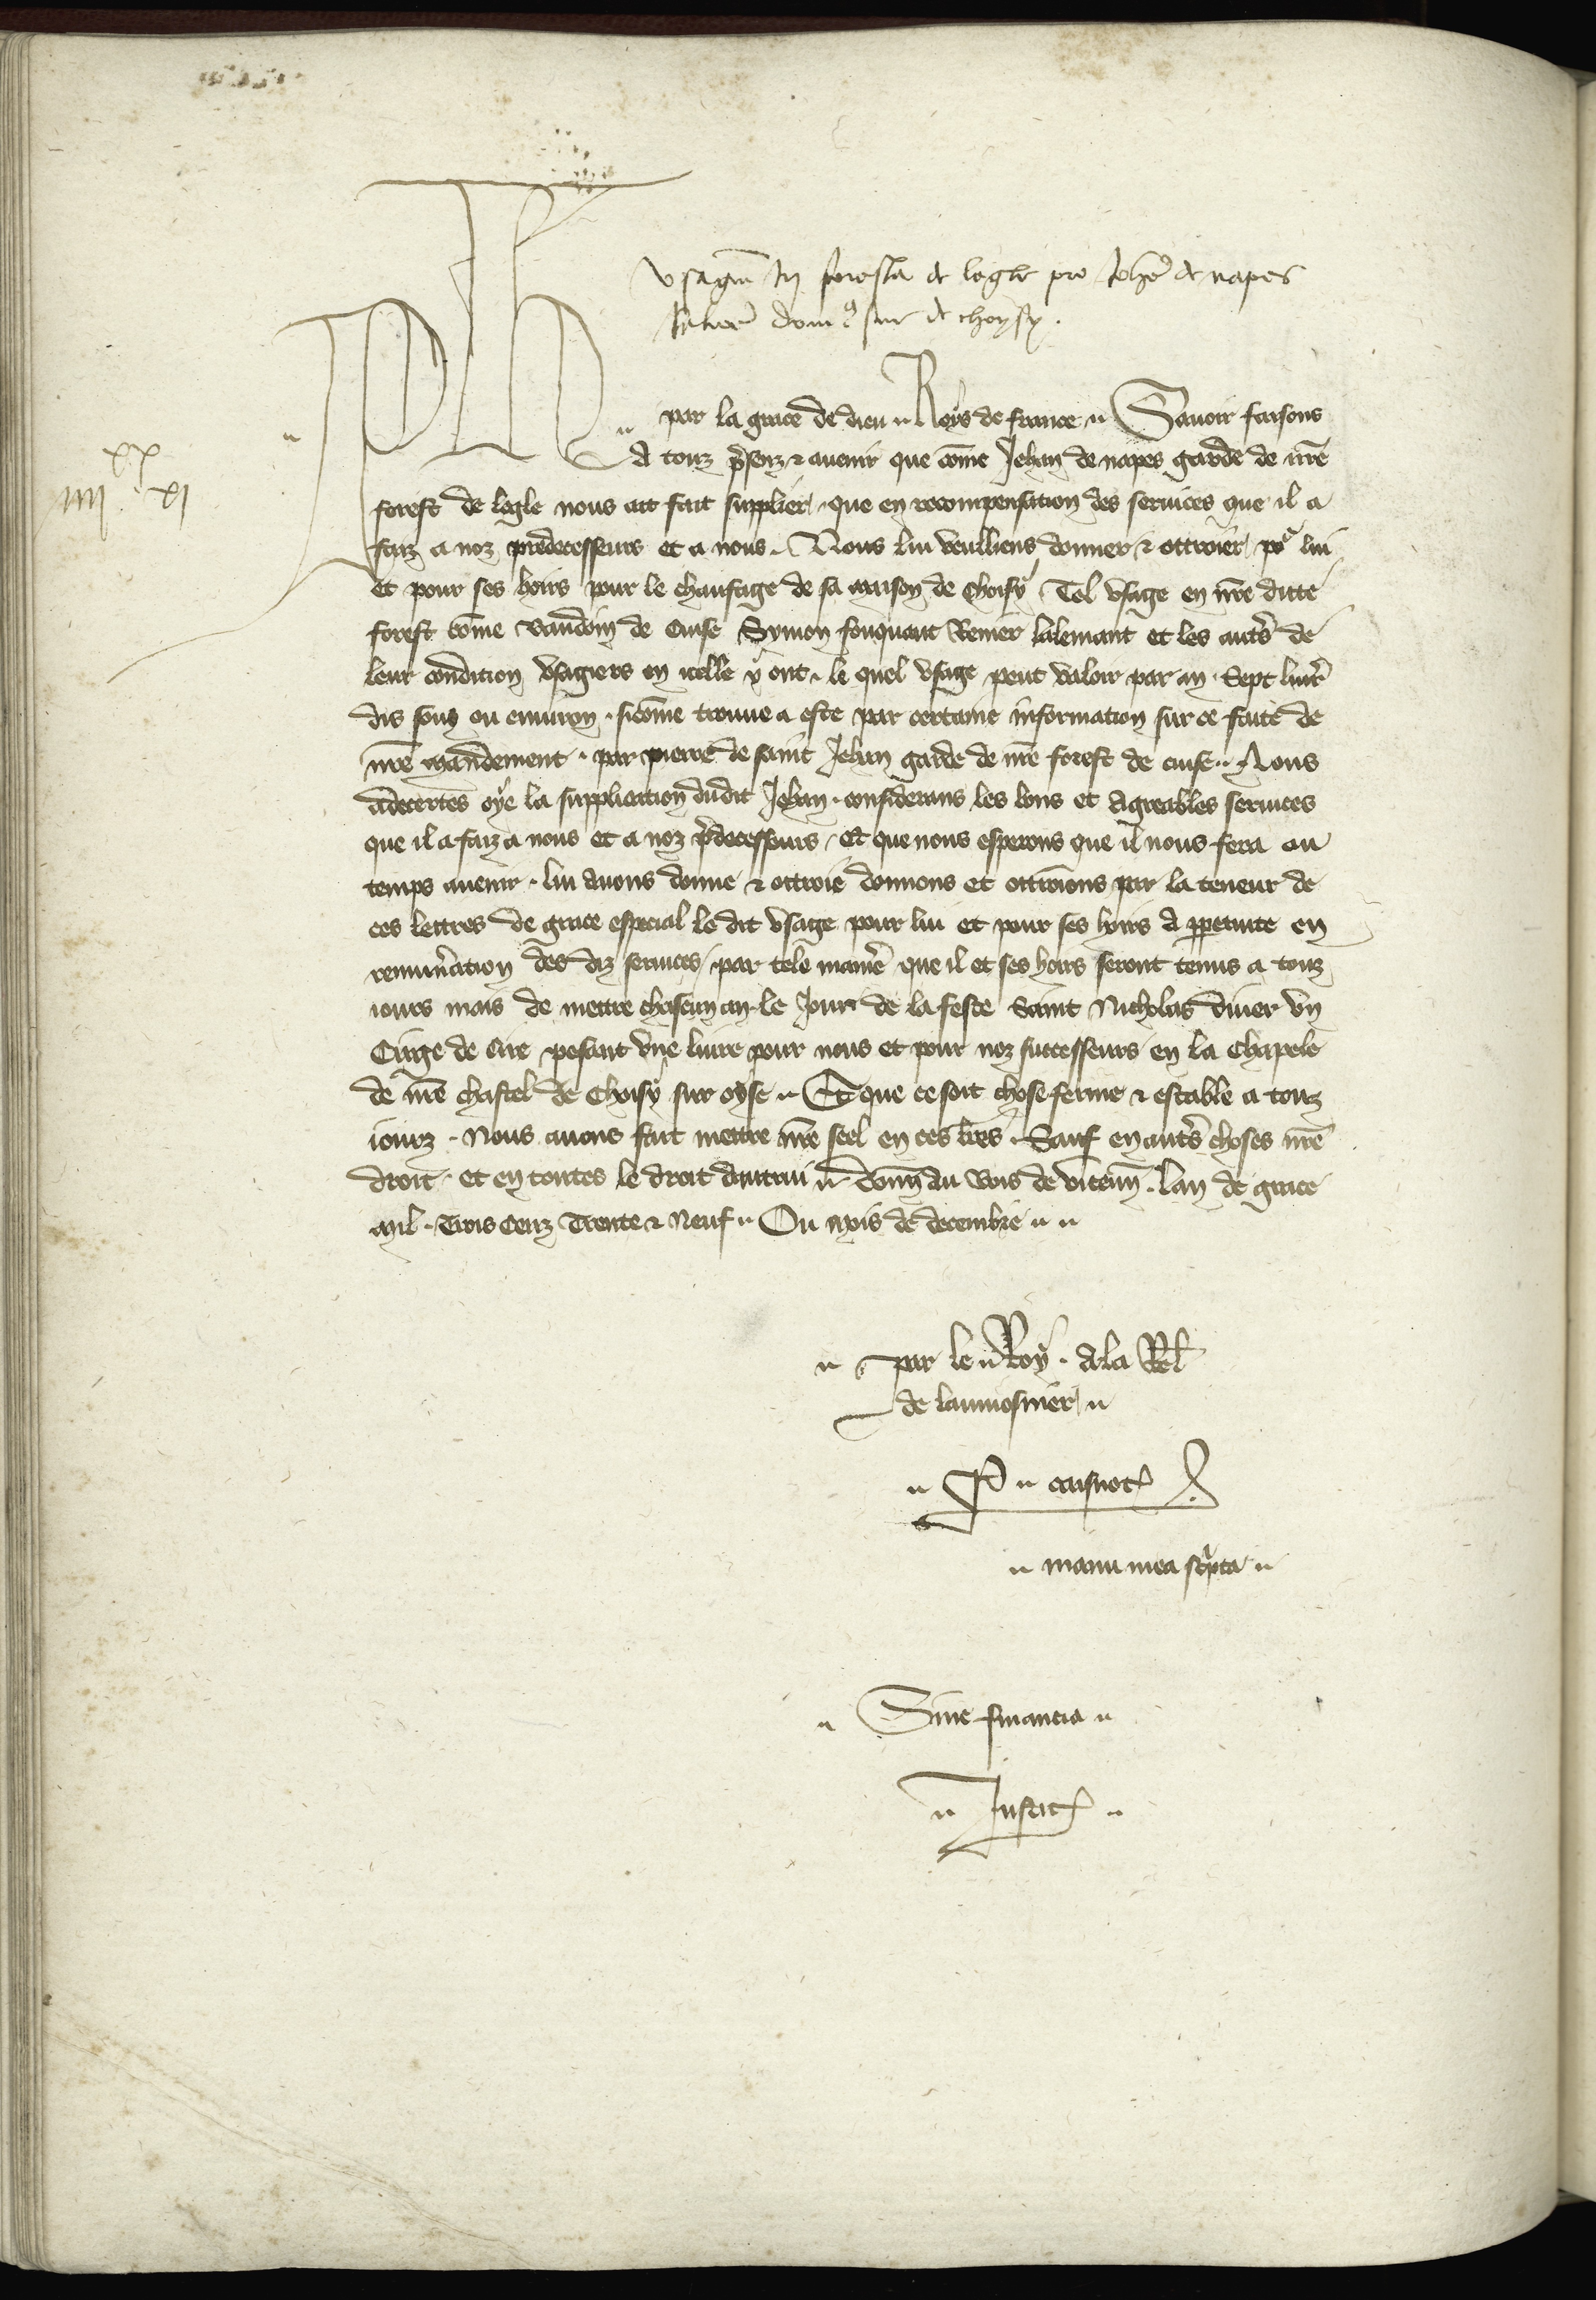 vsagiu in foresta de logle pro Johe de napes
domo sue de choysy.
Ph par la grace de dieu Roys de france Sauoir faisons
A touz psenz & auenir que come Jehan de napes garde de nre
iiii xx xi
forest de logle nous ait fait supplier que en recompensation des seruices que il a
faiz a noz predecesseurs et a nous. Nous lui veulliens donner & ottroier por lui
et pour ses hoirs pour le chaufage de sa maison de Choisy Tel vsage en nre ditte
forest come vaudoin de Cuise Symon fouquaut Renier lalemant et les autrs de
leur condition vsagiers en icelle y ont. le quel vsage peut valoir par an Sept liurs
dis souz ou enuiron. sicome trouue a este par certaine information sur ce faite de
nre mandement. par pierre de saint Jehan garde de nre forest de cuise. Nous
adecertes oye la supplication dudit Jehan. considerans les bons et Agreables seruices
que il a faiz a nous et a noz pdecesseurs. Et que nous esperons que il nous fera ou
temps auenir. lui auons donne & ottroie donnons et ottroions par la teneur de
ces lettres de grace especial le dit vsage pour lui et pour ses hoirs A ppetuite en
remuneration des diz seruices. par tele maniere que il et ses hoirs seront tenus a touz
iours mais de mettre chascun an. le Jour de la feste Saint Nicholas diuer vn
Cirge de Cire pesant vne liure pour nous et pour noz successeurs en la Chapele
de nre chastel de Choisy sur oyse. Et que ce soit chose ferme & estable a touz
iourz. Nous auons fait mettre nre seel en ces lres. Sauf en autrs choses nre
droit. et en toutes le droit dautrui. Donn au bois de vicenn. lan de grace
mil. Trois Cenz Trente & Neuf. Ou mois de decembre
par le Roy. a la Rel
de laumosnier
P caisnot
manu mea scpta
Sine financia